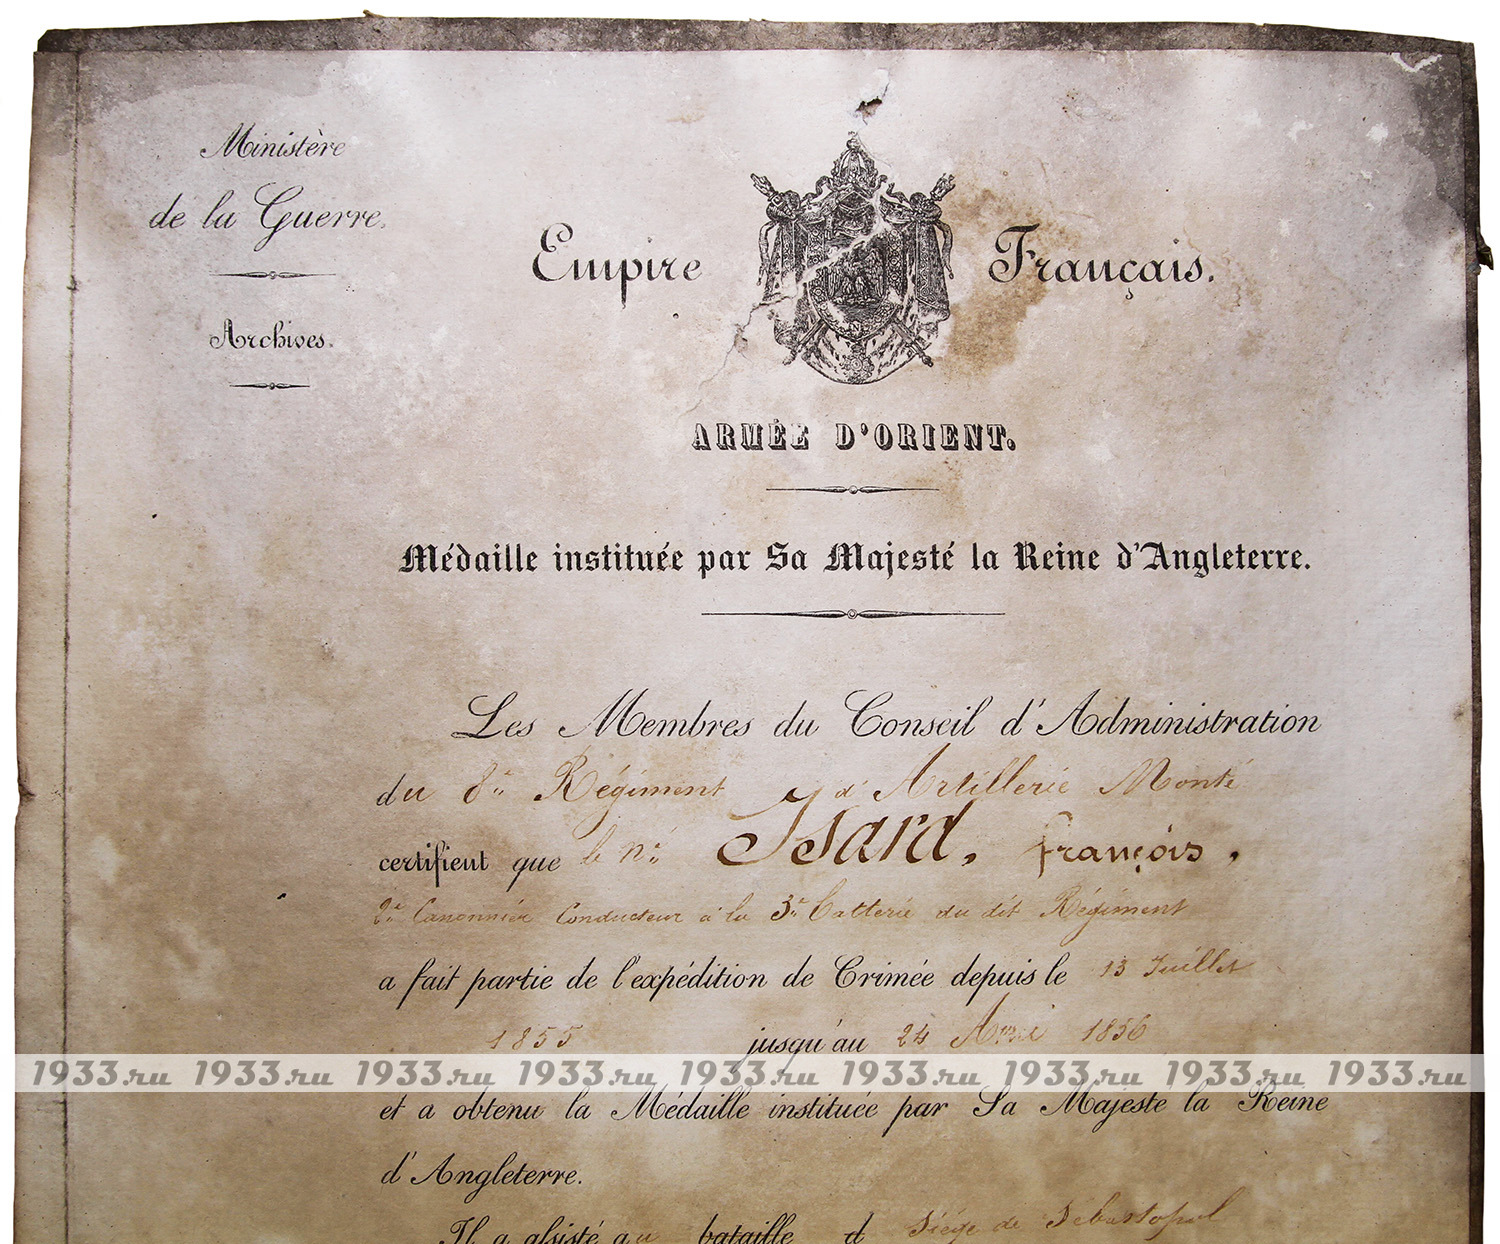 Ministère
de la Guerre.
Archives.
Empire Français.
ARMÉE D'ORIENT.
Médaille instituée par Sa Majesté la Reine d'Angleterre.
Les Membres du Conseil d'Administration
du 8e Régiment d'Artillerie Monté
certifient que le Isard, françois,
2e Canonnier Conducteur à la 3e batterie du dit Régiment
a fait partie de l'expédition de Crimée depuis le 13 Juillet
1855 jusqu'au 24 1856
1933.ru 1933.ru 1933.ru 1933.ru 1933.ru 1933.ru 1933.ru 1933.ru 1933.ru
et a obtenu la Médaille instituée par Sa Majesté la Reine
d'Angleterre.
Il a assisté au bataille d Siége de Sébastopol